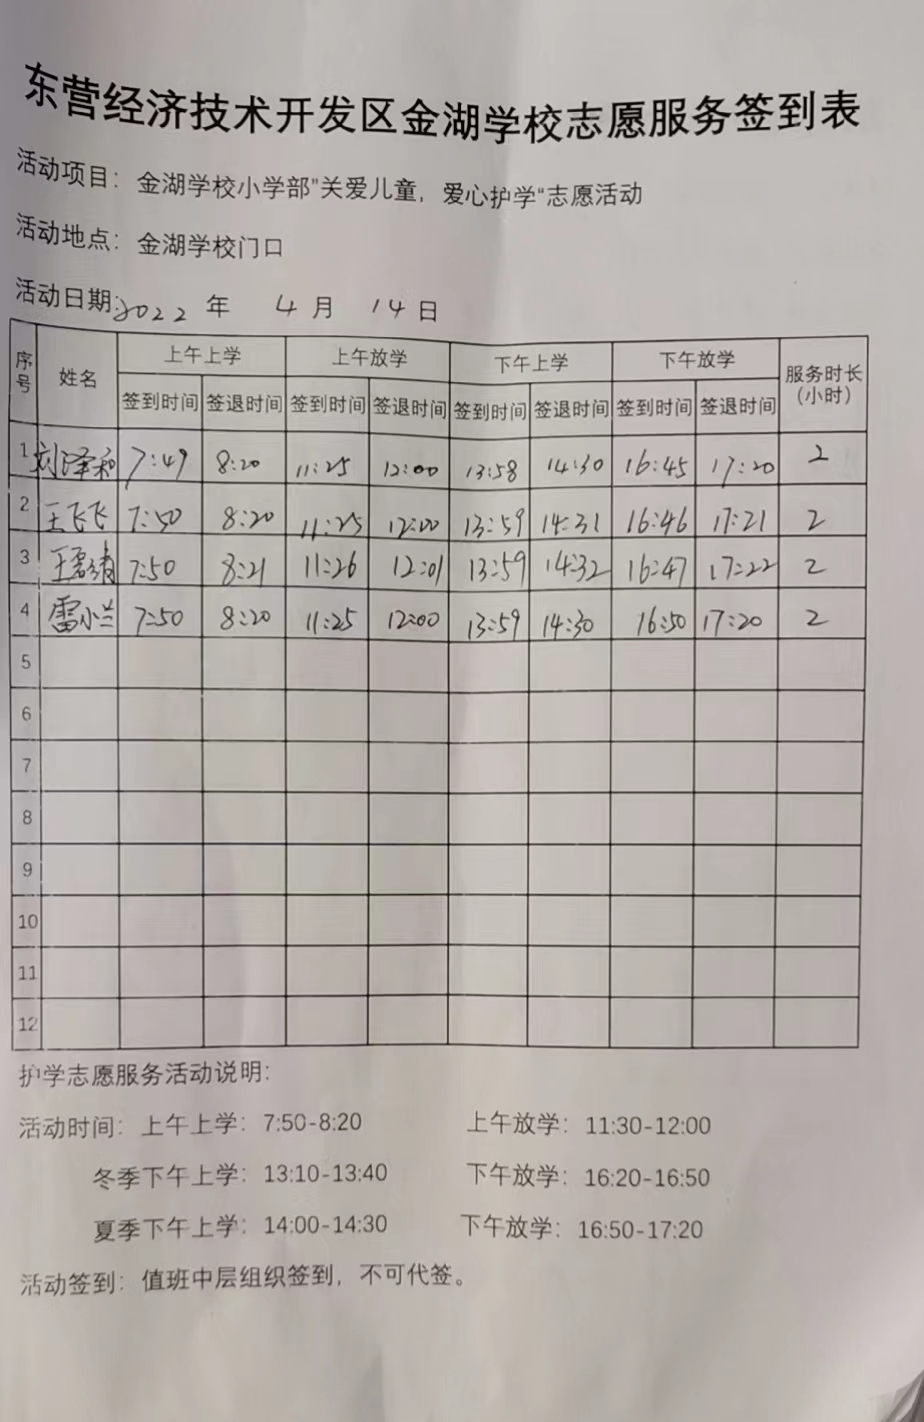 东营经济技术开发区金湖学校志愿服务签到表
活动项目：金湖学校小学部”关爱儿童，爱心护学“志愿活动
活动地点：金湖学校门口
活动日期：2022 年 4 月 14 日
序号 姓名 上午上学 上午放学 下午上学 下午放学 服务时长（小时）
签到时间 签退时间 签到时间 签退时间 签到时间 签退时间 签到时间 签退时间
1 刘泽和 7:49 8:20 11:25 12:00 13:58 14:30 16:45 17:20 2
2 王飞飞 7:50 8:20 11:25 12:00 13:59 14:31 16:46 17:21 2
3 王 7:50 8:21 11:26 12:01 13:59 14:32 16:47 17:22 2
4 雷小兰 7:50 8:20 11:25 12:00 13:59 14:30 16:50 17:20 2
5
6
7
8
9
10
11
12
护学志愿服务活动说明：
活动时间：上午上学：7:50-8:20 上午放学：11:30-12:00
冬季下午上学：13:10-13:40 下午放学：16:20-16:50
夏季下午上学：14:00-14:30 下午放学：16:50-17:20
活动签到：值班中层组织签到，不可代签。